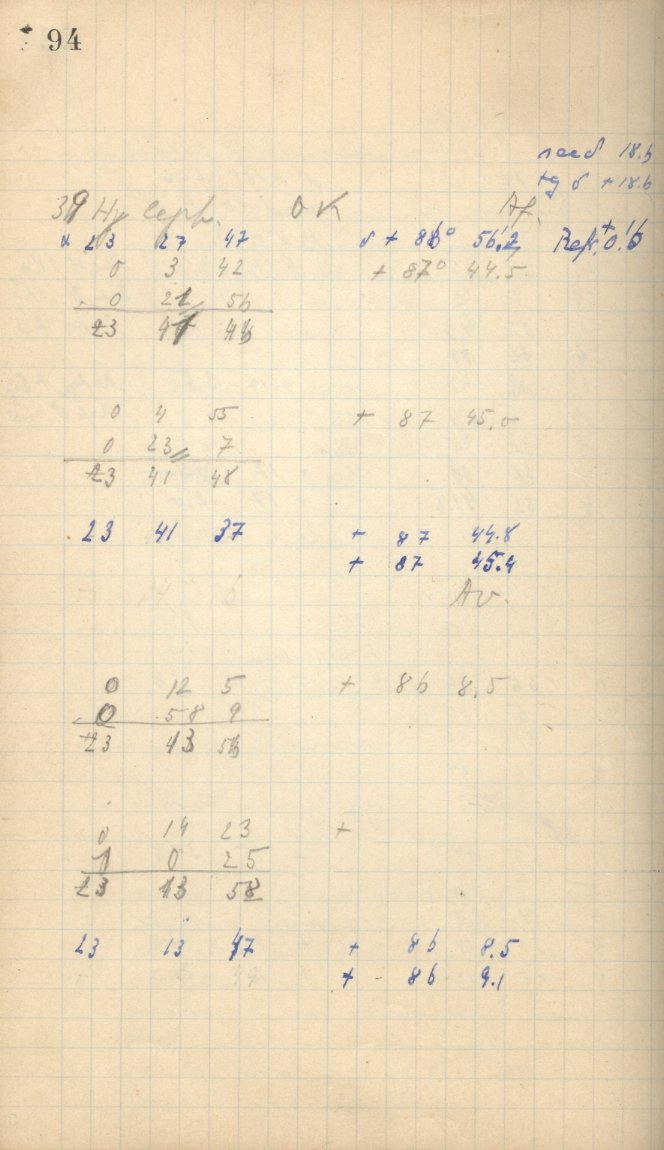 94
sec δ 18.6
tg δ + 18.6
39 Hy Ceph. OK
α 23 27 47 δ + 86° 56.2 Ref. + 0.6
0 3 42 + 87° 44.5
0 21 56
23 41 46
0 4 55 + 87 45.0
0 23 7
23 41 48
23 41 37 + 87 44.8
+ 87 45.4
Av.
0 12 5 + 86 8.5
0 58 9
23 13 56
0 14 23 +
1 0 25
23 13 58
23 13 47 + 86 8.5
+ 86 9.1